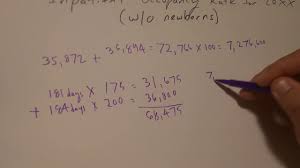 Inpatient Occupancy Rate for 20XX
(w/o newborns)
35,872 + 36,894 = 72,766 × 100 = 7,276,600
181 days × 175 = 31,675
+ 184 days × 200 = 36,800
68,475
7,